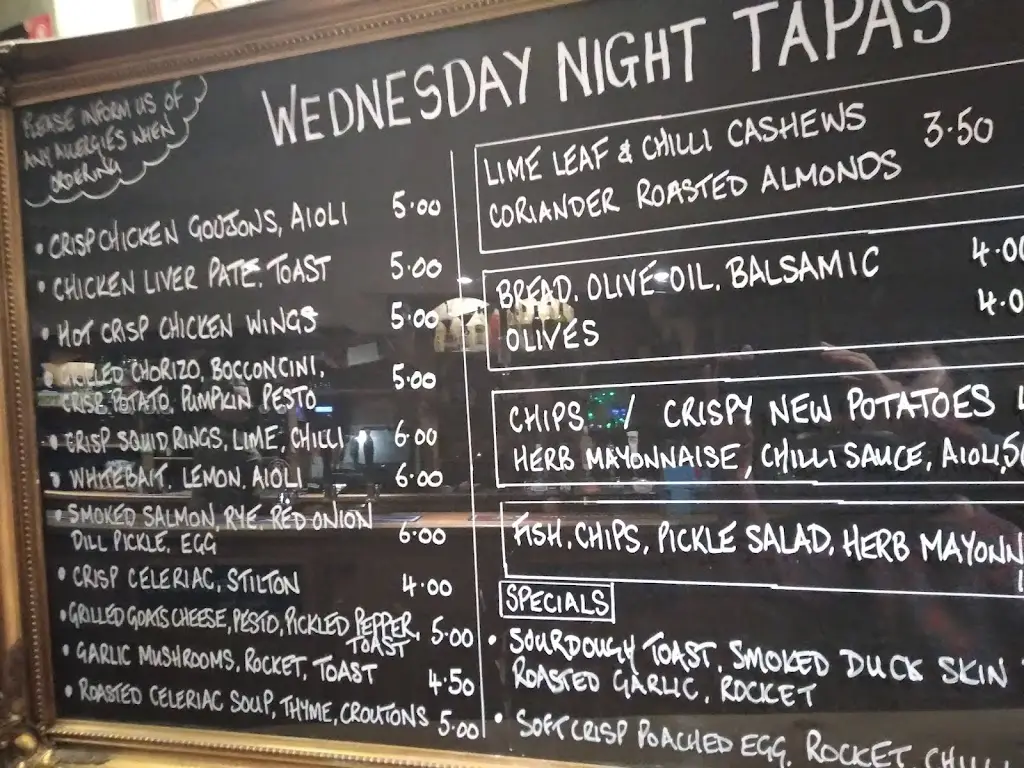 WEDNESDAY NIGHT TAPAS
PLEASE INFORM US OF
ANY ALLERGIES WHEN
ORDERING
• CRISP CHICKEN GOUJONS, AIOLI 5.00
• CHICKEN LIVER PATE, TOAST 5.00
• HOT CRISP CHICKEN WINGS 5.00
• GRILLED CHORIZO, BOCCONCINI,
CRISP POTATO, PUMPKIN PESTO 5.00
• CRISP SQUID RINGS, LIME, CHILLI 6.00
• WHITEBAIT, LEMON, AIOLI 6.00
• SMOKED SALMON, RYE, RED ONION
DILL PICKLE, EGG 6.00
• CRISP CELERIAC, STILTON 4.00
• GRILLED GOATS CHEESE, PESTO, PICKLED PEPPER,
TOAST 5.00
• GARLIC MUSHROOMS, ROCKET, TOAST 4.50
• ROASTED CELERIAC SOUP, THYME, CROUTONS 5.00
LIME LEAF & CHILLI CASHEWS 3.50
CORIANDER ROASTED ALMONDS
BREAD, OLIVE OIL, BALSAMIC 4.00
OLIVES 4.0
CHIPS / CRISPY NEW POTATOES
HERB MAYONNAISE, CHILLI SAUCE, AIOLI,
FISH, CHIPS, PICKLE SALAD, HERB MAYONN
SPECIALS
• SOURDOUGH TOAST, SMOKED DUCK SKIN
ROASTED GARLIC, ROCKET
• SOFT CRISP POACHED EGG, ROCKET, CHILLI